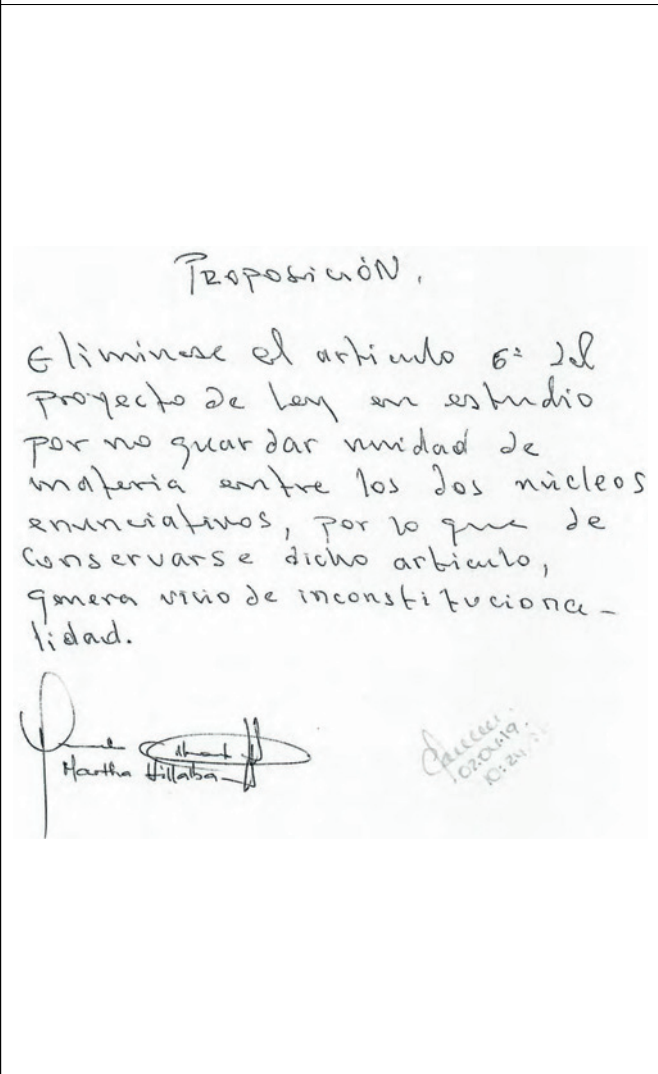 Proposición.
Eliminese el articulo 6º del
proyecto de Ley en estudio
por no guardar unidad de
materia entre los dos núcleos
enunciativos, por lo que de
conservarse dicho articulo,
genera vicio de inconstituciona-
lidad.
Martha Villalba
10:24